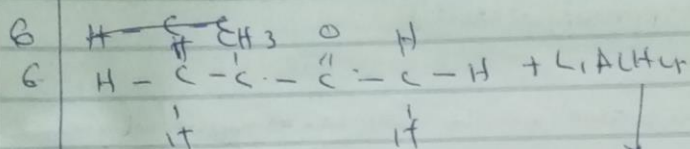 6 H C CH3 O H
H
6 H - C - C - C - C - H + LiAlH4
H H